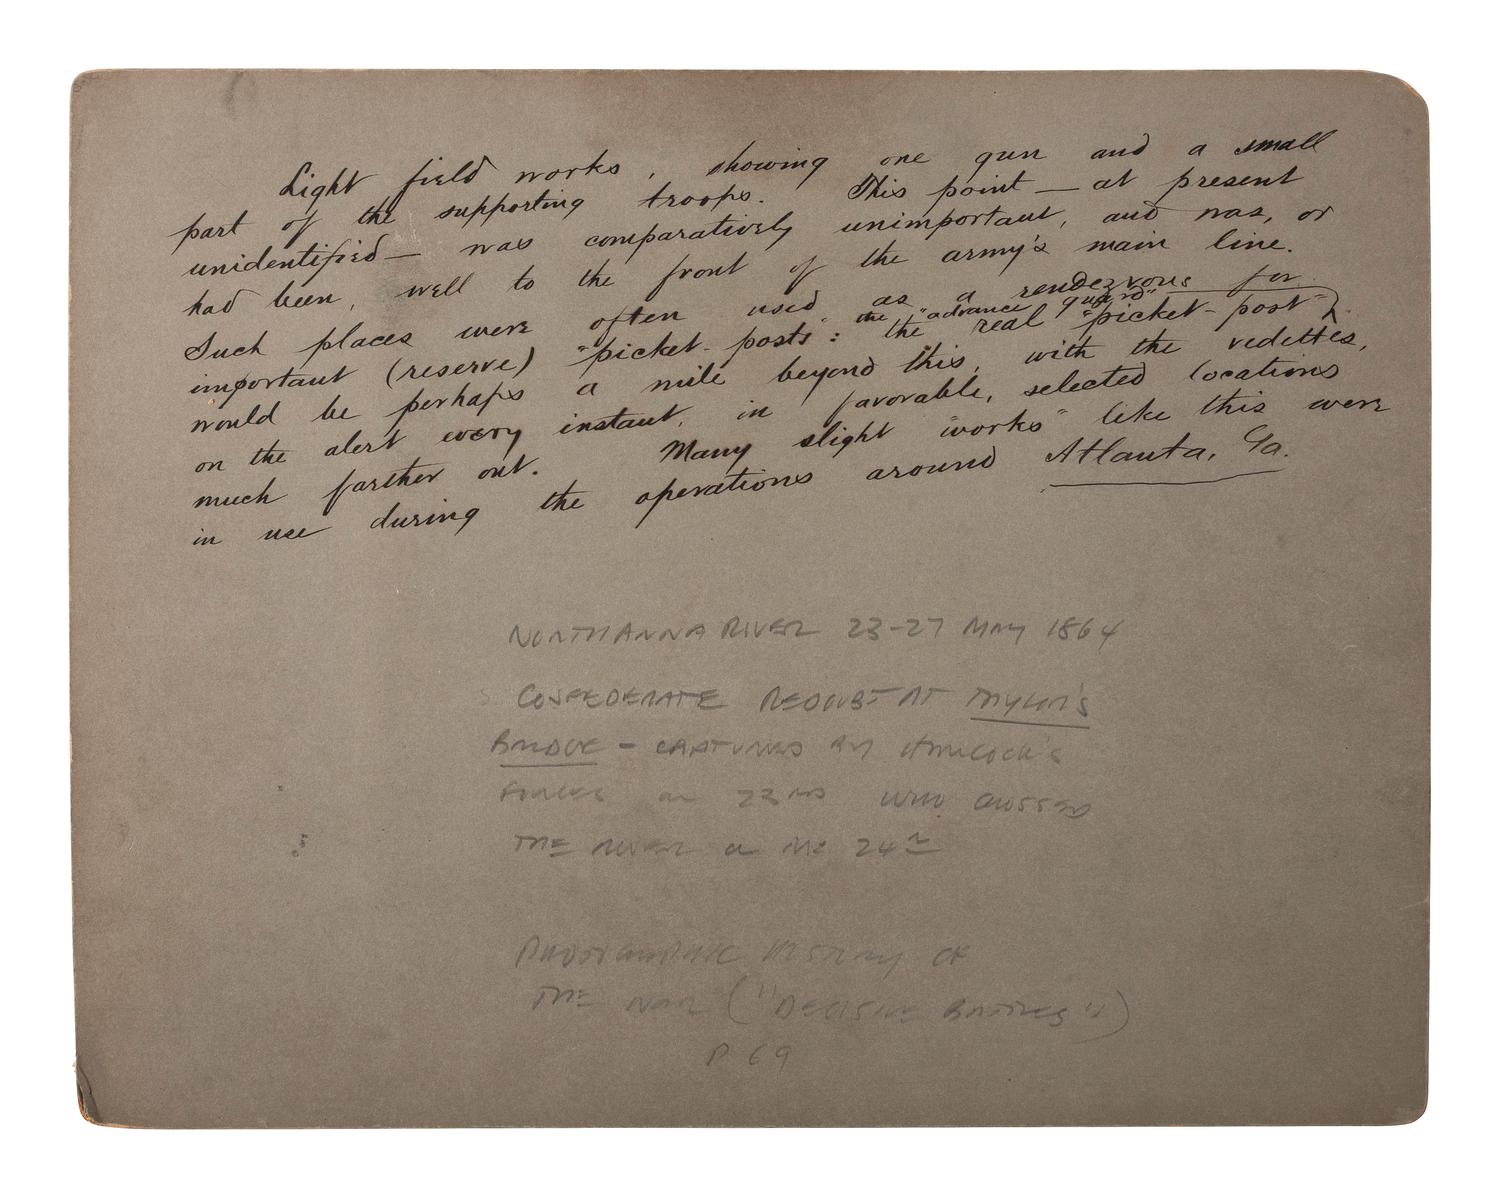 Light field works, showing one gun and a small
part of the supporting troops. This point — at present
unidentified — was comparatively unimportant, and was, or
had been, well to the front of the army's main line.
Such places were often used as a rendezvous for
important (reserve) "picket-posts": the real "picket-post"
the "advance guard"
would be perhaps a mile beyond this, with the vedettes,
on the alert every instant, in favorable, selected locations
much farther out. Many slight "works" like this were
in use during the operations around Atlanta, Ga.
NORTH ANNA RIVER 23-27 MAY 1864
CONFEDERATE REDOUBT AT TAYLOR'S
BRIDGE - CAPTURED BY HANCOCK'S
FORCES ON 23RD WHO CROSSED
THE RIVER ON THE 24TH
PHOTOGRAPHIC HISTORY OF
THE WAR ("DECISIVE BATTLES")
P 69